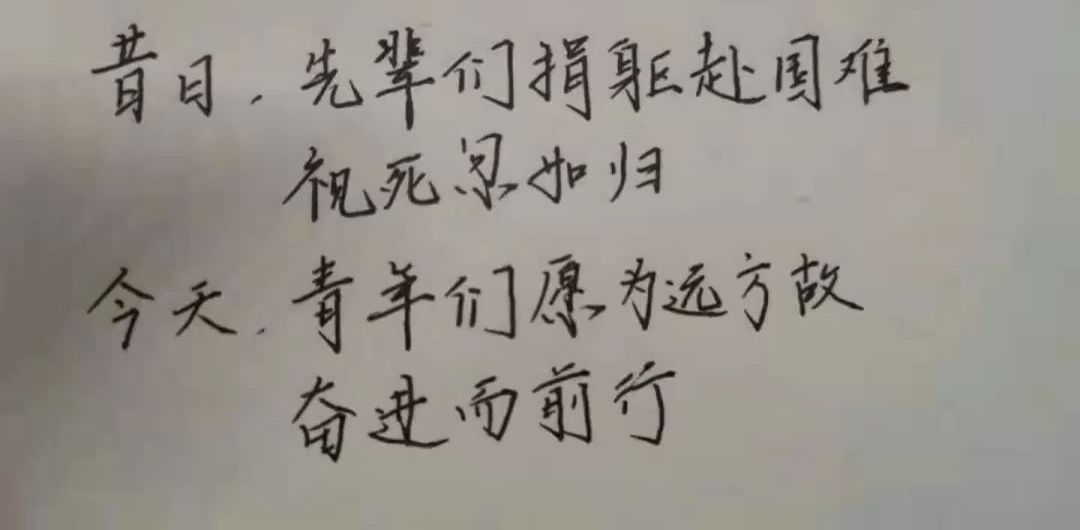 昔日,先辈们捐躯赴国难
视死忽如归
今天,青年们愿为远方故
奋进而前行